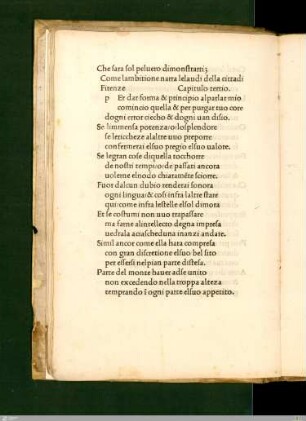 Che sara sol peluero dimonstrarti;
Come lambitione narra le laudi della cittadi
Firenze Capitulo tertio.
p Er dar forma & principio alparlar mio
comincio quella & per purgar tuo core
dogni error ciecho & dogni uan disio.
Se limmensa potenza/o losplendore
se lericcheze alaltre uuo preporre
confermerai elsuo pregio elsuo ualore.
Se legran cose diquella tocchorre
de nostri tempi/o de passati ancora
uolerne elnodo chiaramēte sciorre.
Fuor dalcun dubio renderai sonora
ogni lingua: & cosi infra laltre stare
qui come infra lestelle elsol dimora
Et se costumi non uuo trapassare
ma farne alintellecto degna impresa
uedrala aciascheduna inanzi andare.
Simil ancor come ella hara compresa
con gran discretione elsuo bel sito
per essersi nel pian parte distesa.
Parte del monte hauer adse unito
non excedendo nella troppa alteza
temprando ī ogni parte elsuo appetito.